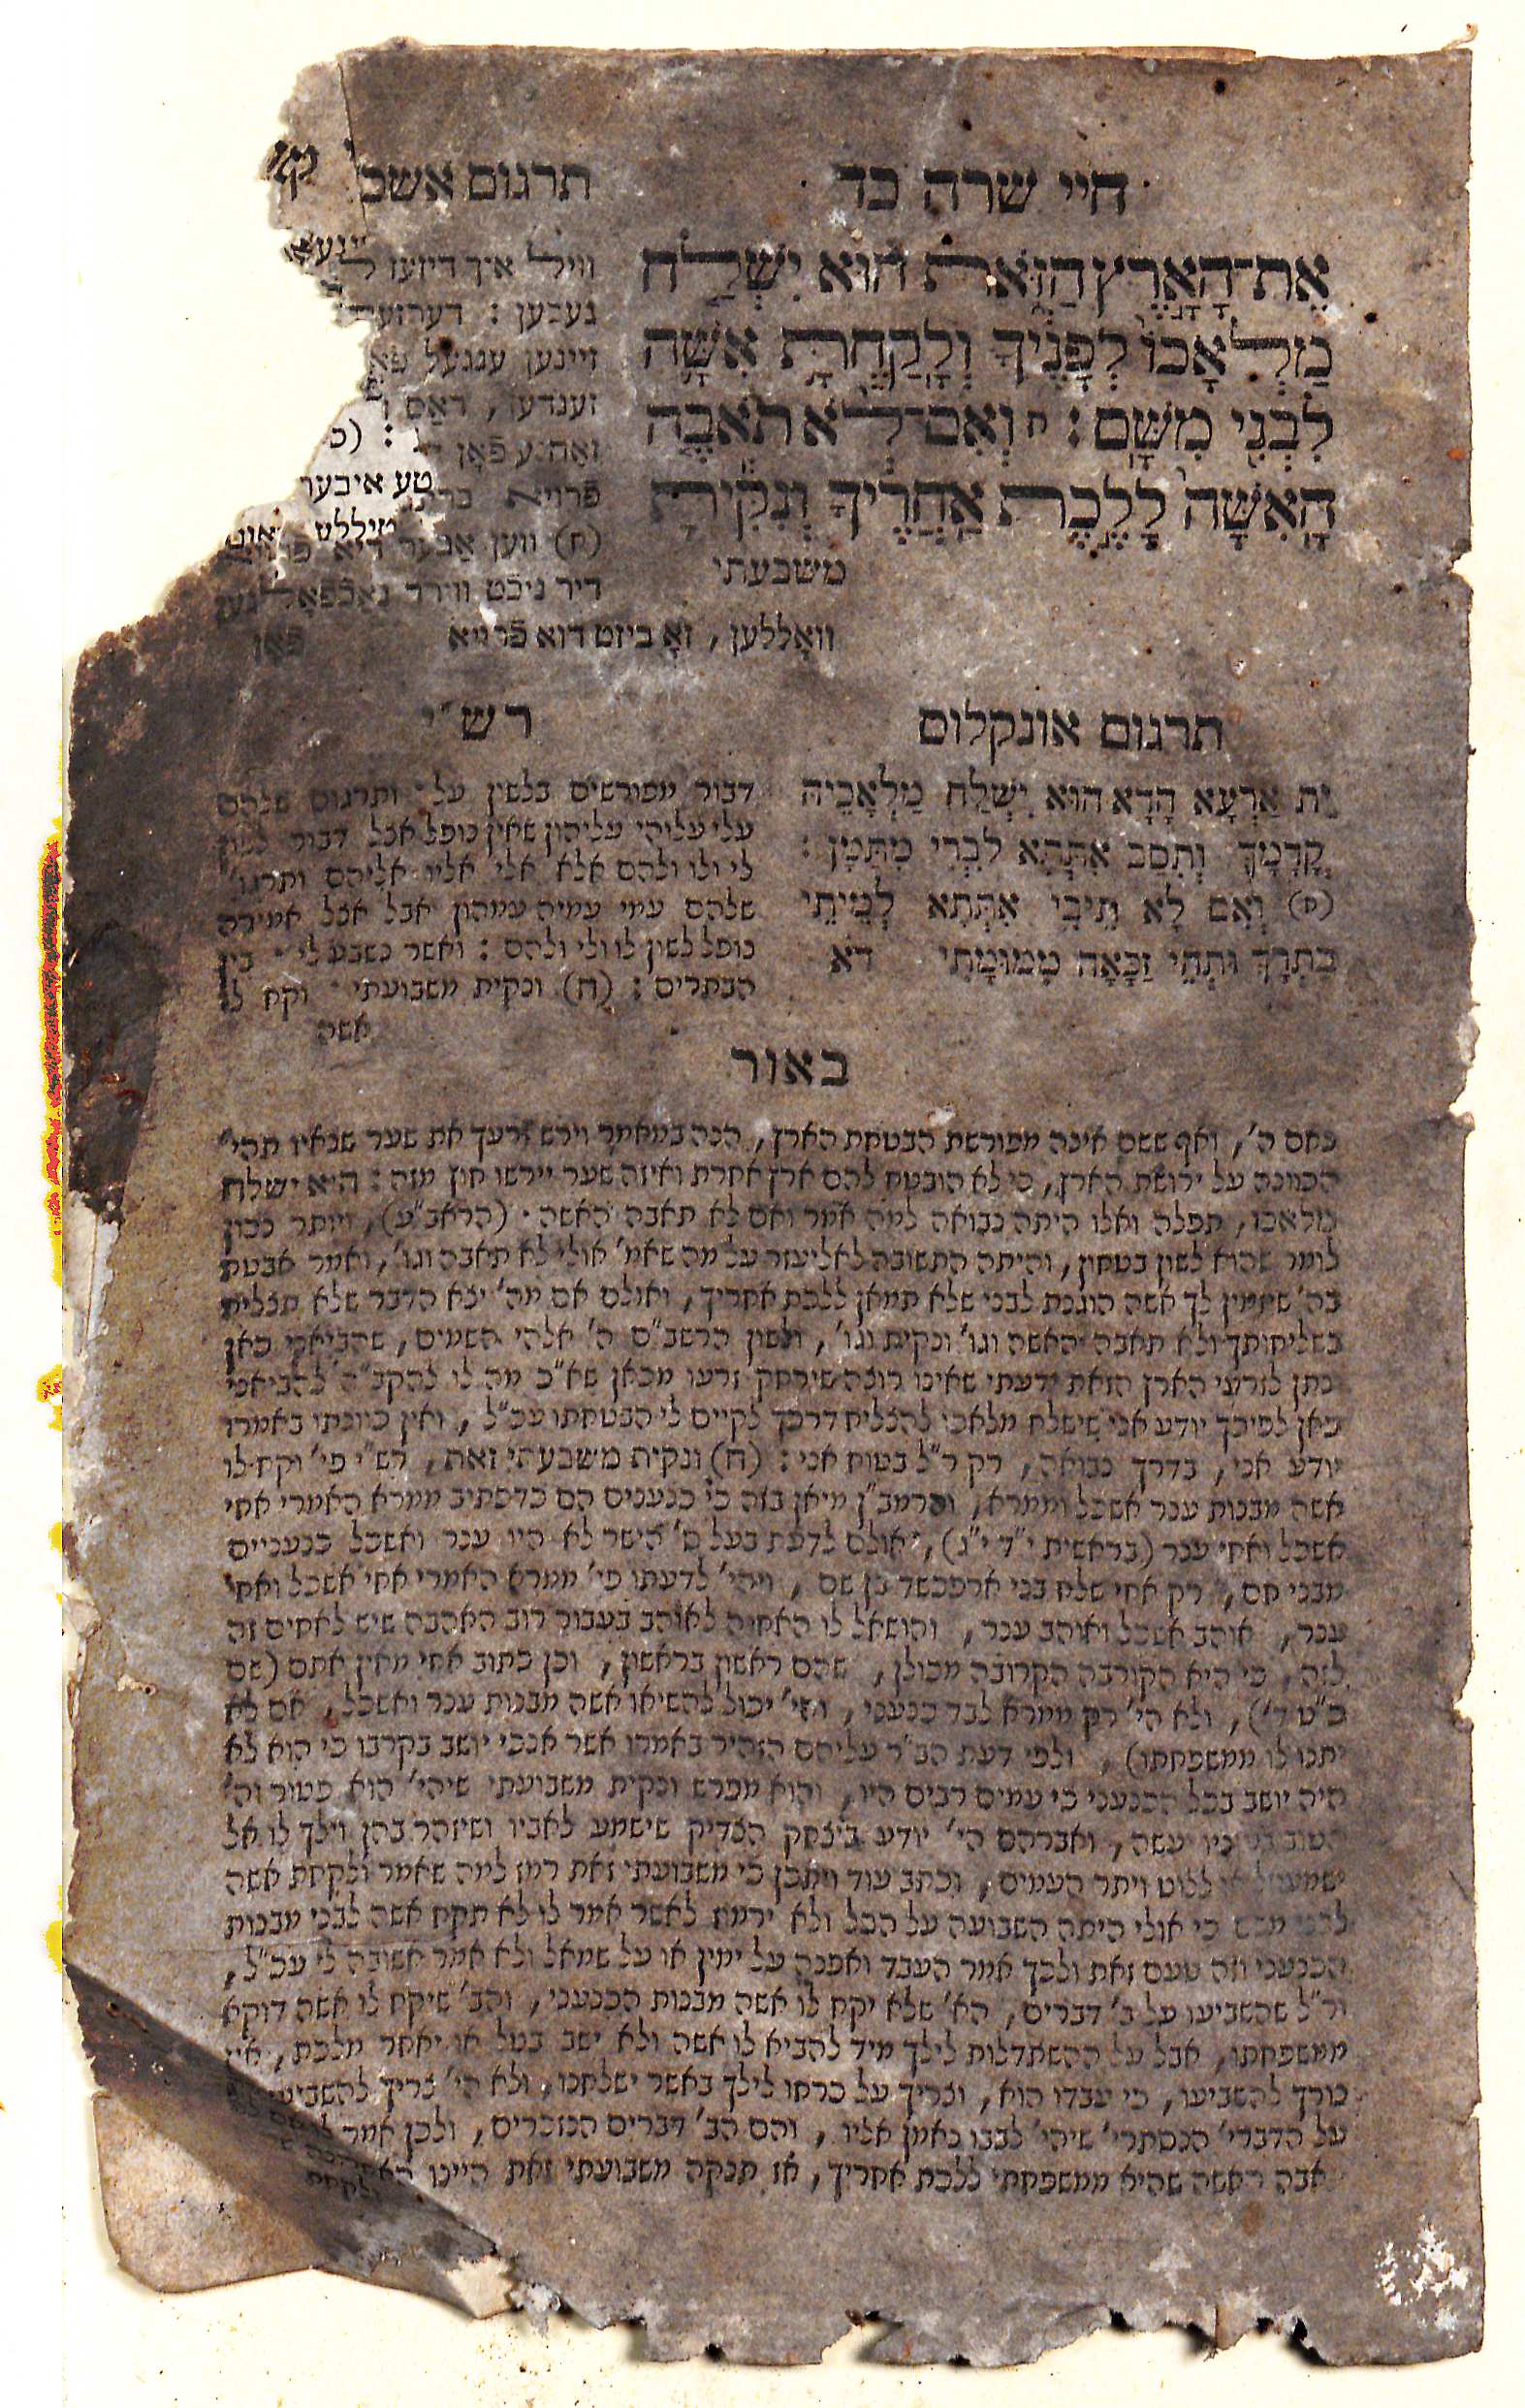 חיי שרה כד
אֶת־הָאָרֶץ הַזֹּאת הוּא יִשְׁלַח
מַלְאָכוֹ לְפָנֶיךָ וְלָקַחְתָּ אִשָּׁה
לִבְנִי מִשָּׁם : ח וְאִם־לֹא תֹאבֶה
הָאִשָּׁה לָלֶכֶת אַחֲרֶיךָ וְנִקִּיתָ
משבעתי
תרגום אשכ
ווילל איך דיזען
געבען : דערזע
זיינען ענגעל פֿאָ
זענדען , דאס
ל : (כ
טע איבער
(ח) ווען אבער דיא
דיר ניכט ווירד נאָכֿפֿאָלגען
וואָללען , זאָ ביזט דוא פֿרייא פֿאָן
תרגום אונקלוס
יָת אַרְעָא הָדָא הוּא יִשְׁלַח מַלְאָכֵיהּ
קֳדָמָךְ וְתִסַּב אִתְּתָא לִבְרִי מִתַּמָּן :
(ח) וְאִם לָא תֵיבֵי אִתְּתָא לְמֵיתֵי
בַּתְרָךְ וּתְהֵי זַכָּאָה מִמּוֹמָתִי דא
רש״י
דבור מפורשים בלשון על ותרגום שלהם
עלי עלוהי עליהון שאין נופל אצל דבור לשון
לי ולו ולהם אלא אלי אליו אליהם ותרגו׳
שלהם עמי עמיה עמהון אבל אצל אמירה
נופל לשון לו ולי ולהם : ואשר נשבע לי בין
הבתרים : (ח) ונקית משבועתי וקח לו
אשה
באור
כאם ה׳ , ואף ששם אינה מפורשת הבטחת הארץ , הנה במאמר וירש זרעך את שער שנאיו תהי׳
הכוונה על ירושת הארץ , כי לא הובטח להם ארץ אחרת ואיזה שער יירשו חוץ מזה : הוא ישלח
מלאכו , תפלה ואלו היתה נבואה למה אמר ואם לא תאבה האשה (הראב״ע) , ויותר נכון
לומר שהוא לשון בטחון , והיתה התשובה לאליעזר על מה שאמ׳ אולי לא תאבה וגו׳ , ואמר אבטח
בה׳ שיזמין לך אשה הוגנת לבני שלא תמאן ללכת אחריך , ואולם אם מה׳ יצא הדבר שלא תצליח
בשליחותך ולא תאבה האשה וגו׳ ונקית וגו׳ , ולשון הרשב״ם ה׳ אלהי השמים , שהביאני כאן
ונתן לזרעי הארץ הזאת ידעתי שאינו רוצה שירחק זרעו מכאן שא״כ מה לו להקב״ה להביאני
כאן לפיכך יודע אני שישלח מלאכו להצליח דרכך לקיים לי הבטחתו עכ״ל , ואין כיונתו באמרו
יודע אני , בדרך נבואה , רק ר״ל בטוח אני : (ח) ונקית משבעתי זאת , רש״י פי׳ וקח לו
אשה מבנות ענר אשכל וממרא , והרמב״ן מיאן בזה כי כנענים הם כדכתיב ממרא האמרי אחי
אשכל ואחי ענר (בראשית י״ד י״ג) , אולם לדעת בעל ס׳ הישר לא היו ענר ואשכל כנעניים
מבני חם , רק אחי שלח בני ארפכשד בן שם , ויהי׳ לדעתו פי׳ ממרא האמרי אחי אשכל ואחי
ענר , אוהב אשכל ואוהב ענר , והושאל לו האחוה לאוהב בעבור רוב האהבה שיש לאחים זה
לזה , כי היא הקורבה הקרובה מכולן , שהם ראשון בראשון , וכן כתוב אחי מאין אתם (שם
כ״ט ד׳) , ולא הי׳ רק ממרא לבד כנעני , והי׳ יכול להשיאו אשה מבנות ענר ואשכל , אם לא
יתנו לו ממשפחתו) , ולפי דעת הב״ר עליהם הזהיר באמרו אשר אנכי יושב בקרבו כי הוא לא
היה יושב בכל הכנעני כי עמים רבים היו , והוא מפרש ונקית משבועתי שיהי׳ הוא פטור וה׳
הטוב בעיניו יעשה , ואברהם הי׳ יודע ביצחק הצדיק שישמע לאביו ושיזהר בהן וילך לו אל
ישמעאל או ללוט ויתר העמים , וכתב עוד ויתכן כי משבועתי זאת רמז למה שאמר ולקחת אשה
לבני משם כי אולי היתה השבועה על הכל ולא ירמוז לאשר אמר לו לא תקח אשה לבני מבנות
הכנעני וזה טעם זאת ולכך אמר העבד ואפנה על ימין או על שמאל ולא אמר אשובה לי עכ״ל ,
ור״ל שהשביעו על ב׳ דברים , הא׳ שלא יקח לו אשה מבנות הכנעני , והב׳ שיקח לו אשה דוקא
ממשפחתו , אבל על ההשתדלות לילך מיד להביא לו אשה ולא ישב בטל או יאחר מלכת , אין
צורך להשביעו , כי עבדו הוא , וצריך על כרחו לילך באשר ישלחנו , ולא הי׳ צריך להשביעו
על הדברי׳ הנסתרי׳ שיהי׳ לבבו נאמן אליו , והם הב׳ דברים הנזכרים , ולכן אמר
אבה האשה שהיא ממשפחתי ללכת אחריך , אז תנקה משבועתי זאת היינו